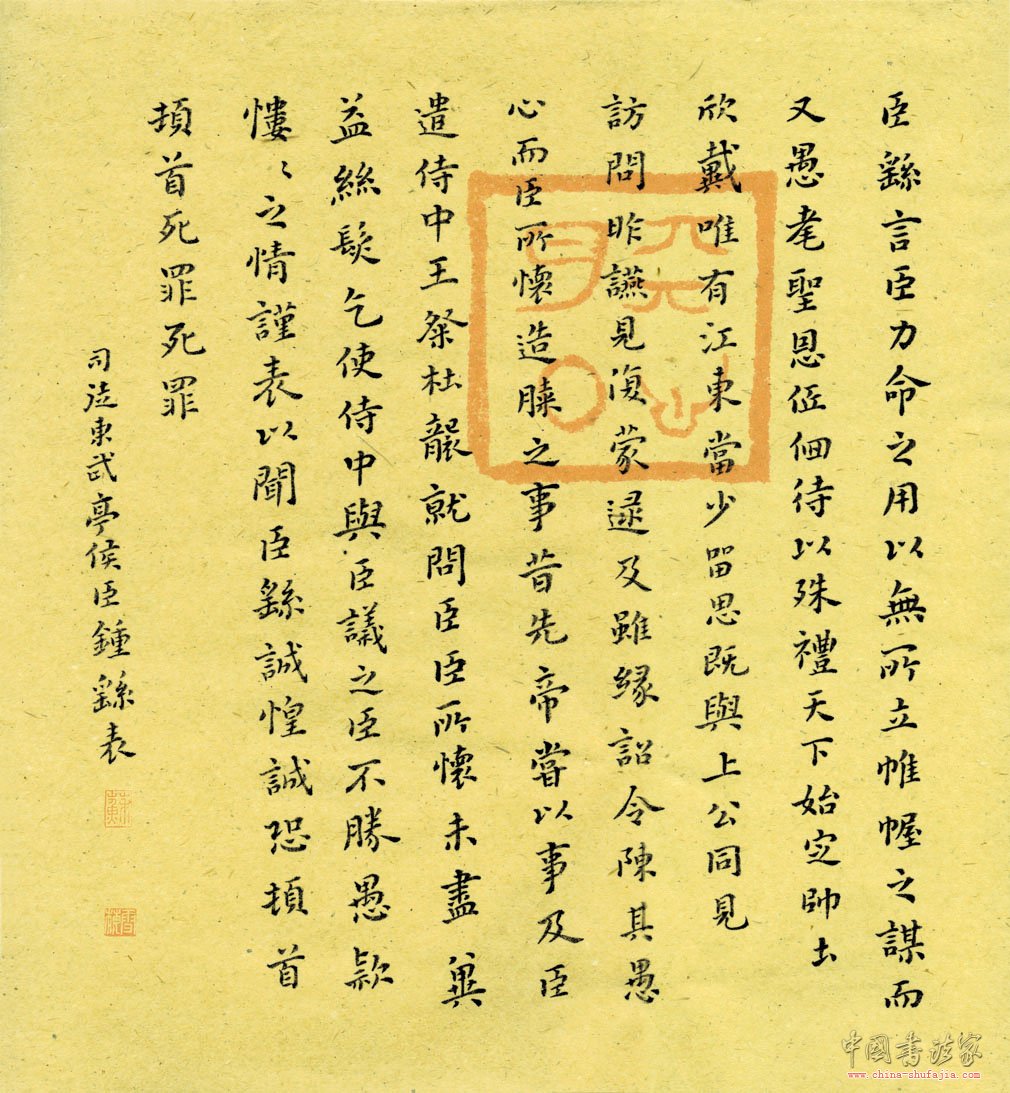 臣繇言臣力命之用以無所立帷幄之謀而
又愚耄聖恩低佪待以殊禮天下始定帥土
欣戴唯有江東當少留思既與上公同見
訪問昨讌見復蒙逮及雖緣詔令陳其愚
心而臣所懷造膝之事昔先帝嘗以事及臣
遣侍中王粲杜襲就問臣臣所懷未盡冀
益絲髮乞使侍中與臣議之臣不勝愚款
慺〻之情謹表以聞臣繇誠惶誠恐頓首
頓首死罪死罪
司徒東武亭侯臣鍾繇表
中國書法家
www.china-shufajia.com